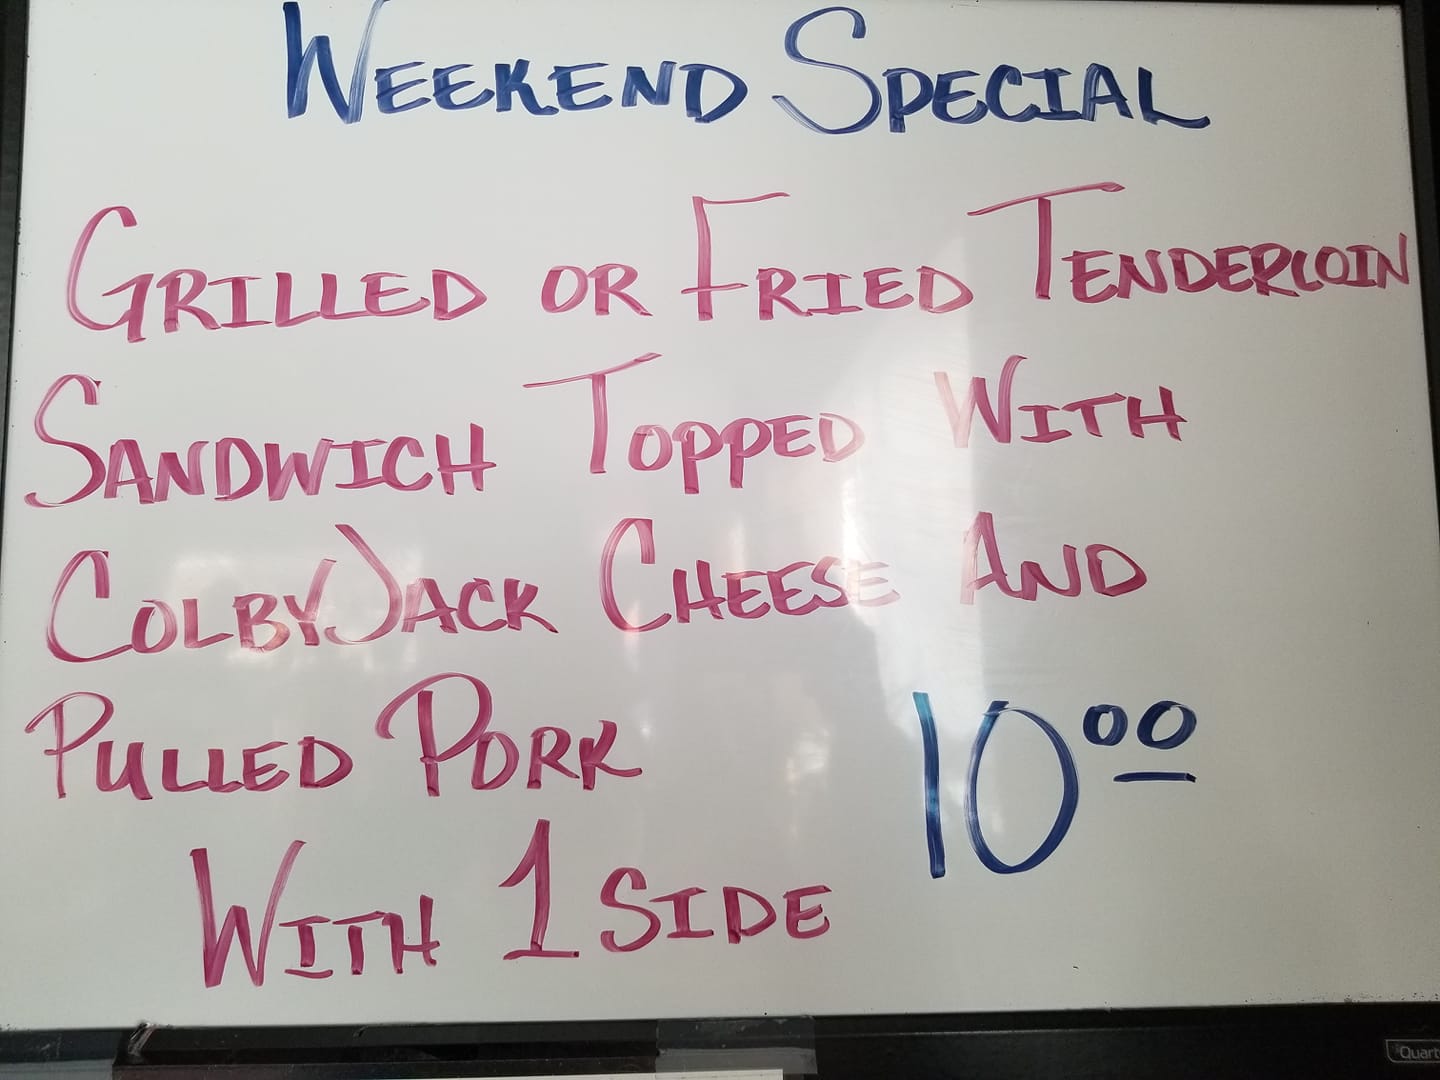 WEEKEND SPECIAL
GRILLED OR FRIED TENDERLOIN
SANDWICH TOPPED WITH
COLBYJACK CHEESE AND
PULLED PORK 10⁰⁰
WITH 1 SIDE